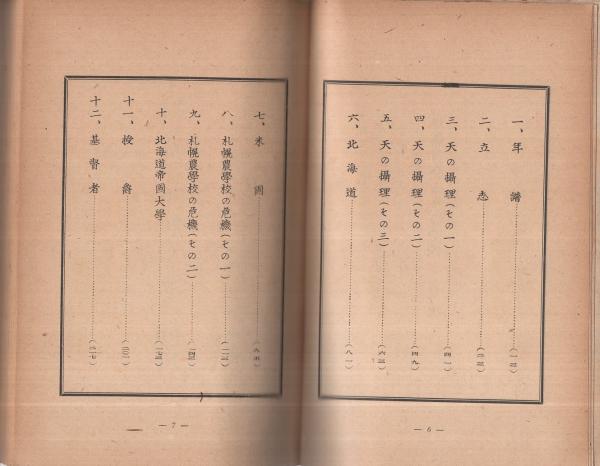 一、年譜……(一三)
二、立志……(二三)
三、天の攝理(その一)……(四一)
四、天の攝理(その二)……(四九)
五、天の攝理(その三)……(六三)
六、北海道……(八一)
— 6 —
七、米國……(九五)
八、札幌農學校の危機(その一)……(一二三)
九、札幌農學校の危機(その二)……
十、北海道帝國大學……
十一、授爵……
十二、基督者……
— 7 —